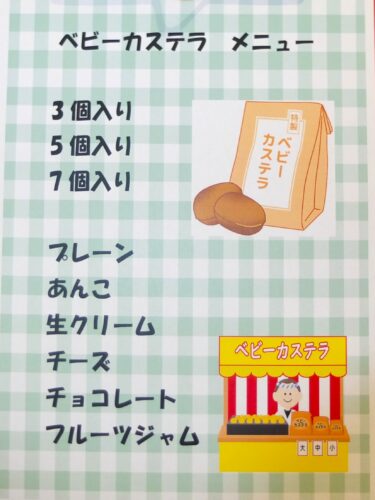 ベビーカステラ　メニュー
３個入り
５個入り
７個入り
特製
ベビー
カステラ
プレーン
あんこ
生クリーム
チーズ
チョコレート
フルーツジャム
ベビーカステラ
大 中 小